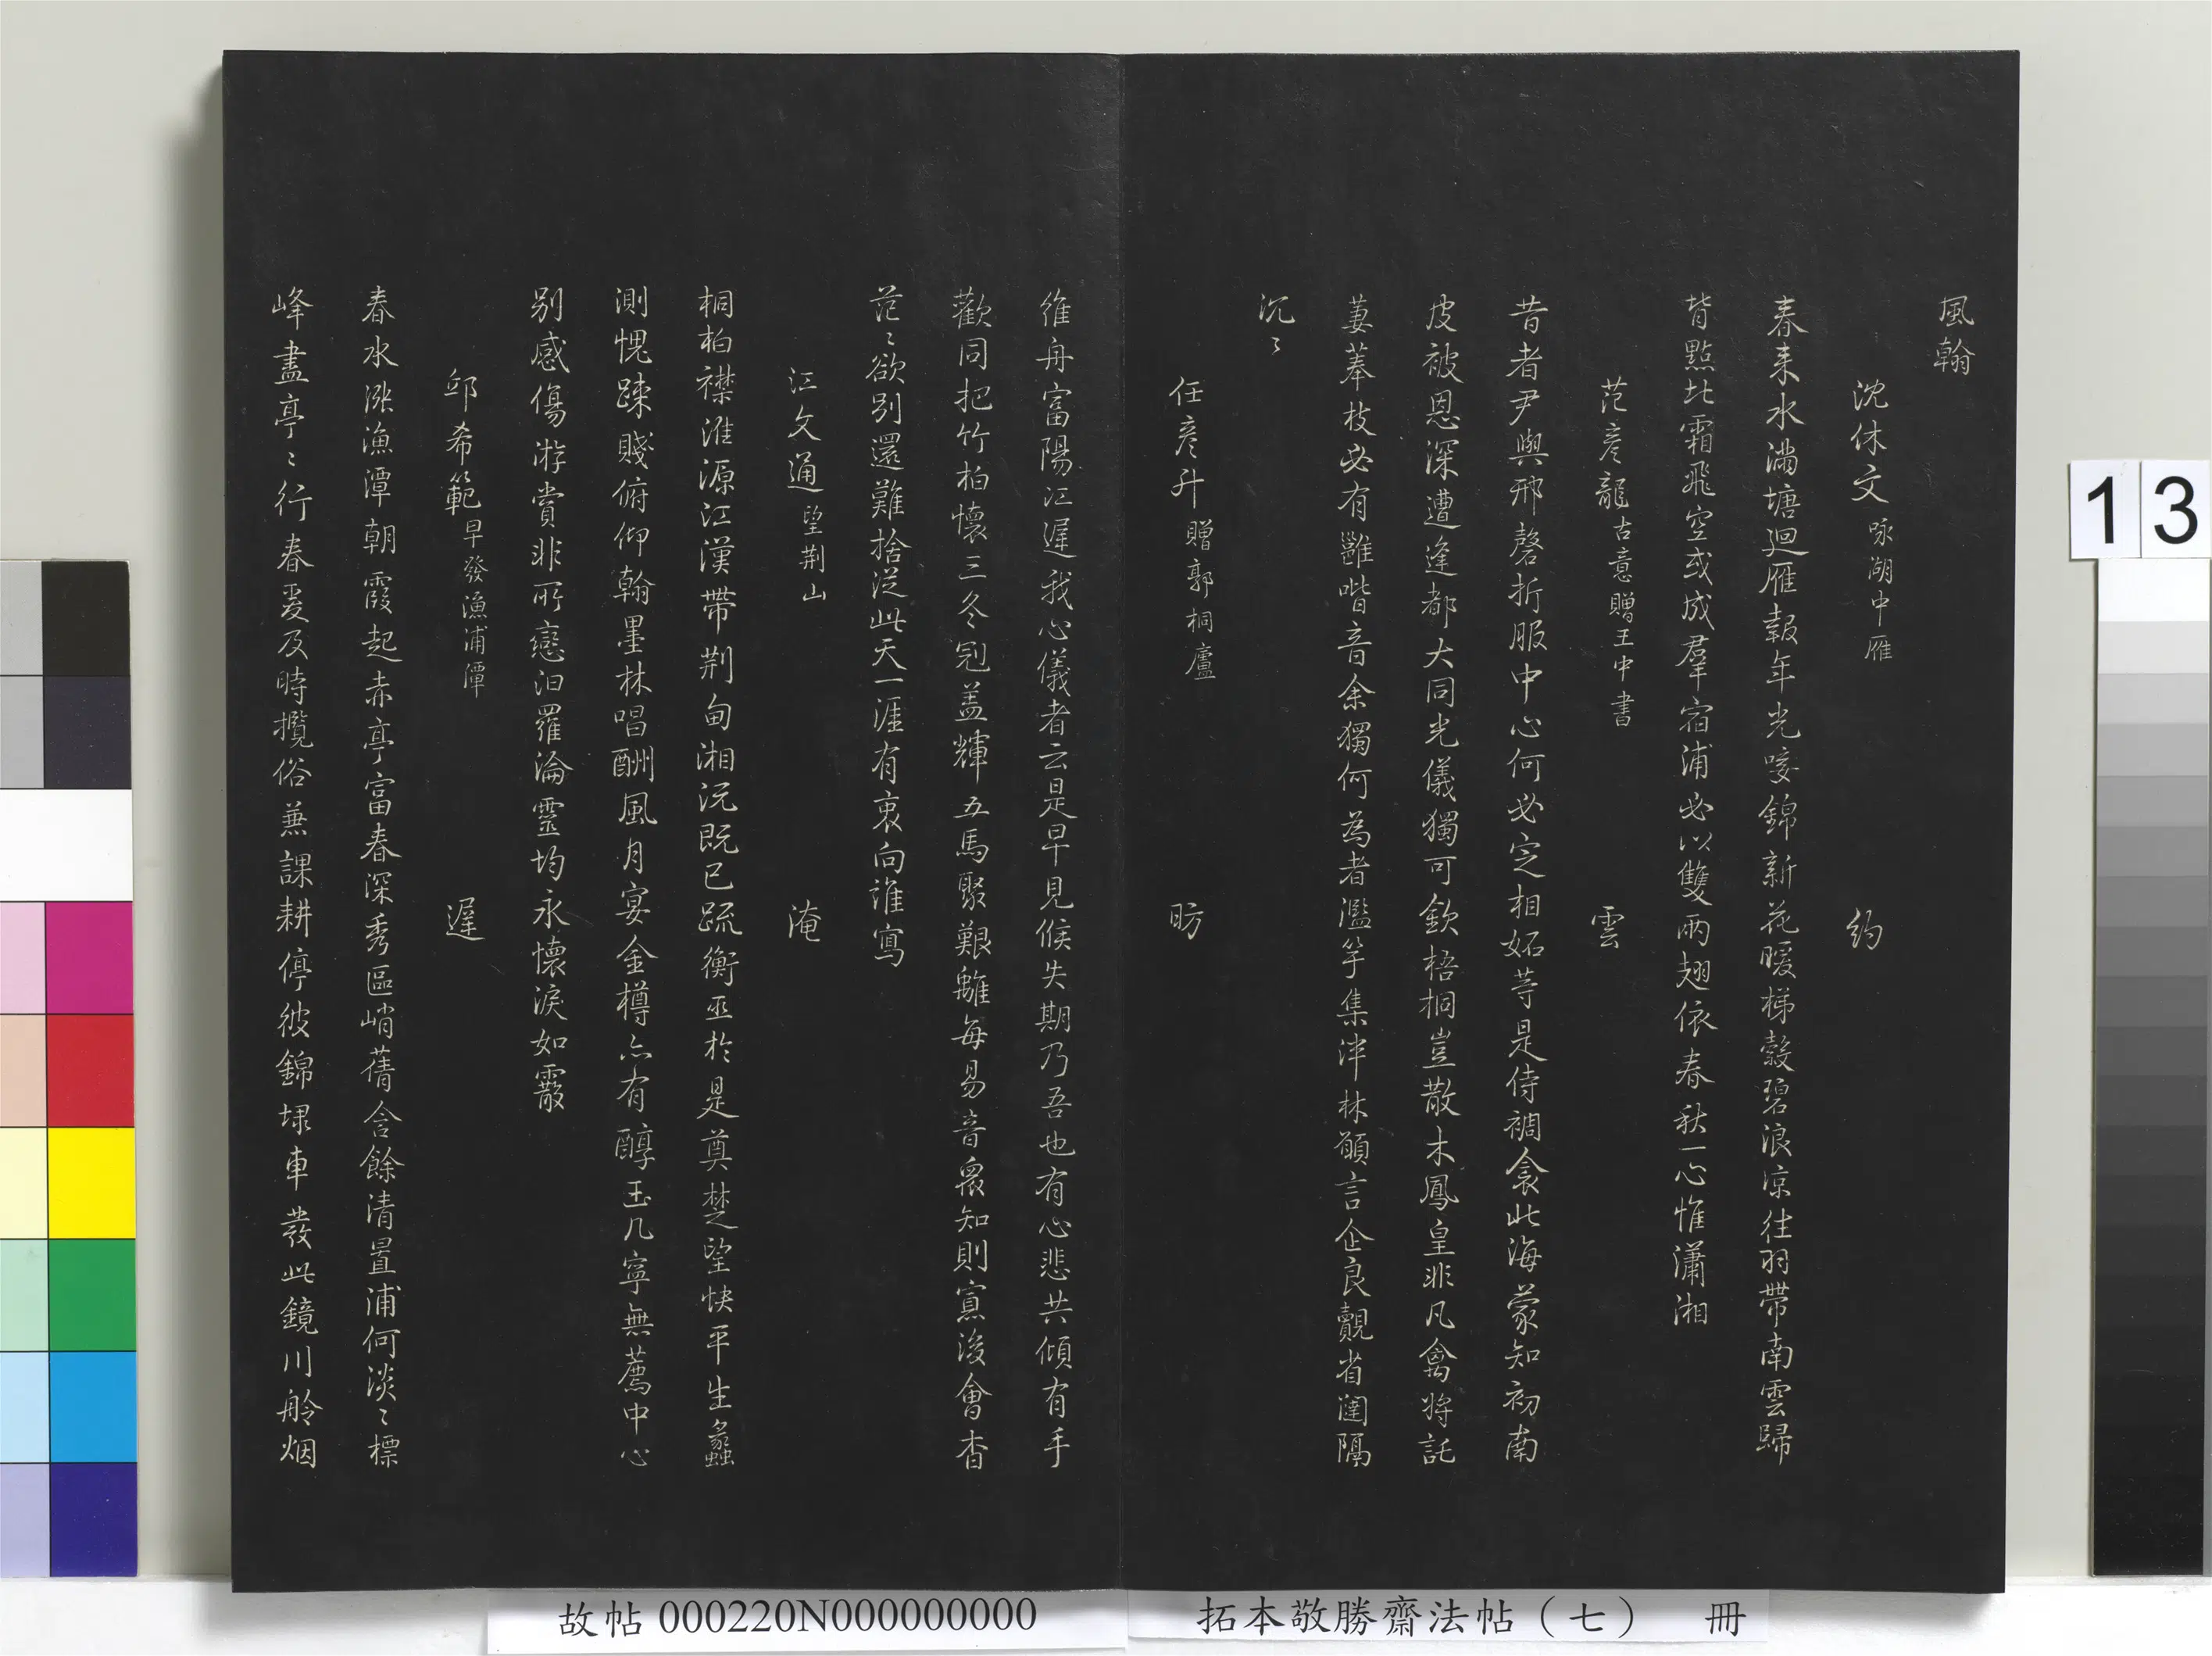 風翰
沈休文 咏湖中雁 約
春来水滿塘迴雁報年光唼錦新花暖梯縠碧浪凉往羽帶南雲歸
背點北霜飛空或成羣宿浦必以雙兩翅依春秋一心惟瀟湘
范彦龍 古意贈王中書 雲
昔者尹與邢磬折服中心何必定相妬等是侍裯衾此海蒙知初南
皮被恩深遭逢都大同光儀獨可欽梧桐豈散木鳳皇非凡禽將託
萋菶枝必有雝喈音余獨何為者濫竽集泮林願言企良覿省闥隔
沉〻
任彦升 贈郭桐廬 昉
維舟富陽江遲我心儀者云是早見候失期乃吾也有心悲共傾有手
歡同把竹柏懷三冬冠盖輝五馬聚艱離每易音衆知則寡後會杳
茫〻欲別還難捨從此天一涯有衷向誰寫
江文通 望荆山 淹
桐柏襟淮源江漢帶荆甸湘沅既已疏衡巫於是奠楚望快平生蠡
測愧踈賤俯仰翰墨林唱酬風月宴金樽亦有醇玉几寧無薦中心
別感傷游賞非所戀汨羅淪靈均永懷淚如霰
邱希範 早發漁浦潭 遲
春水漲漁潭朝霞起赤亭富春深秀區峭蒨含餘清罝浦何淡〻標
峰盡亭〻行春爰及時攬俗兼課耕停彼錦埭車發此鏡川舲烟
13
故帖000220N000000000
拓本敬勝齋法帖（七） 冊